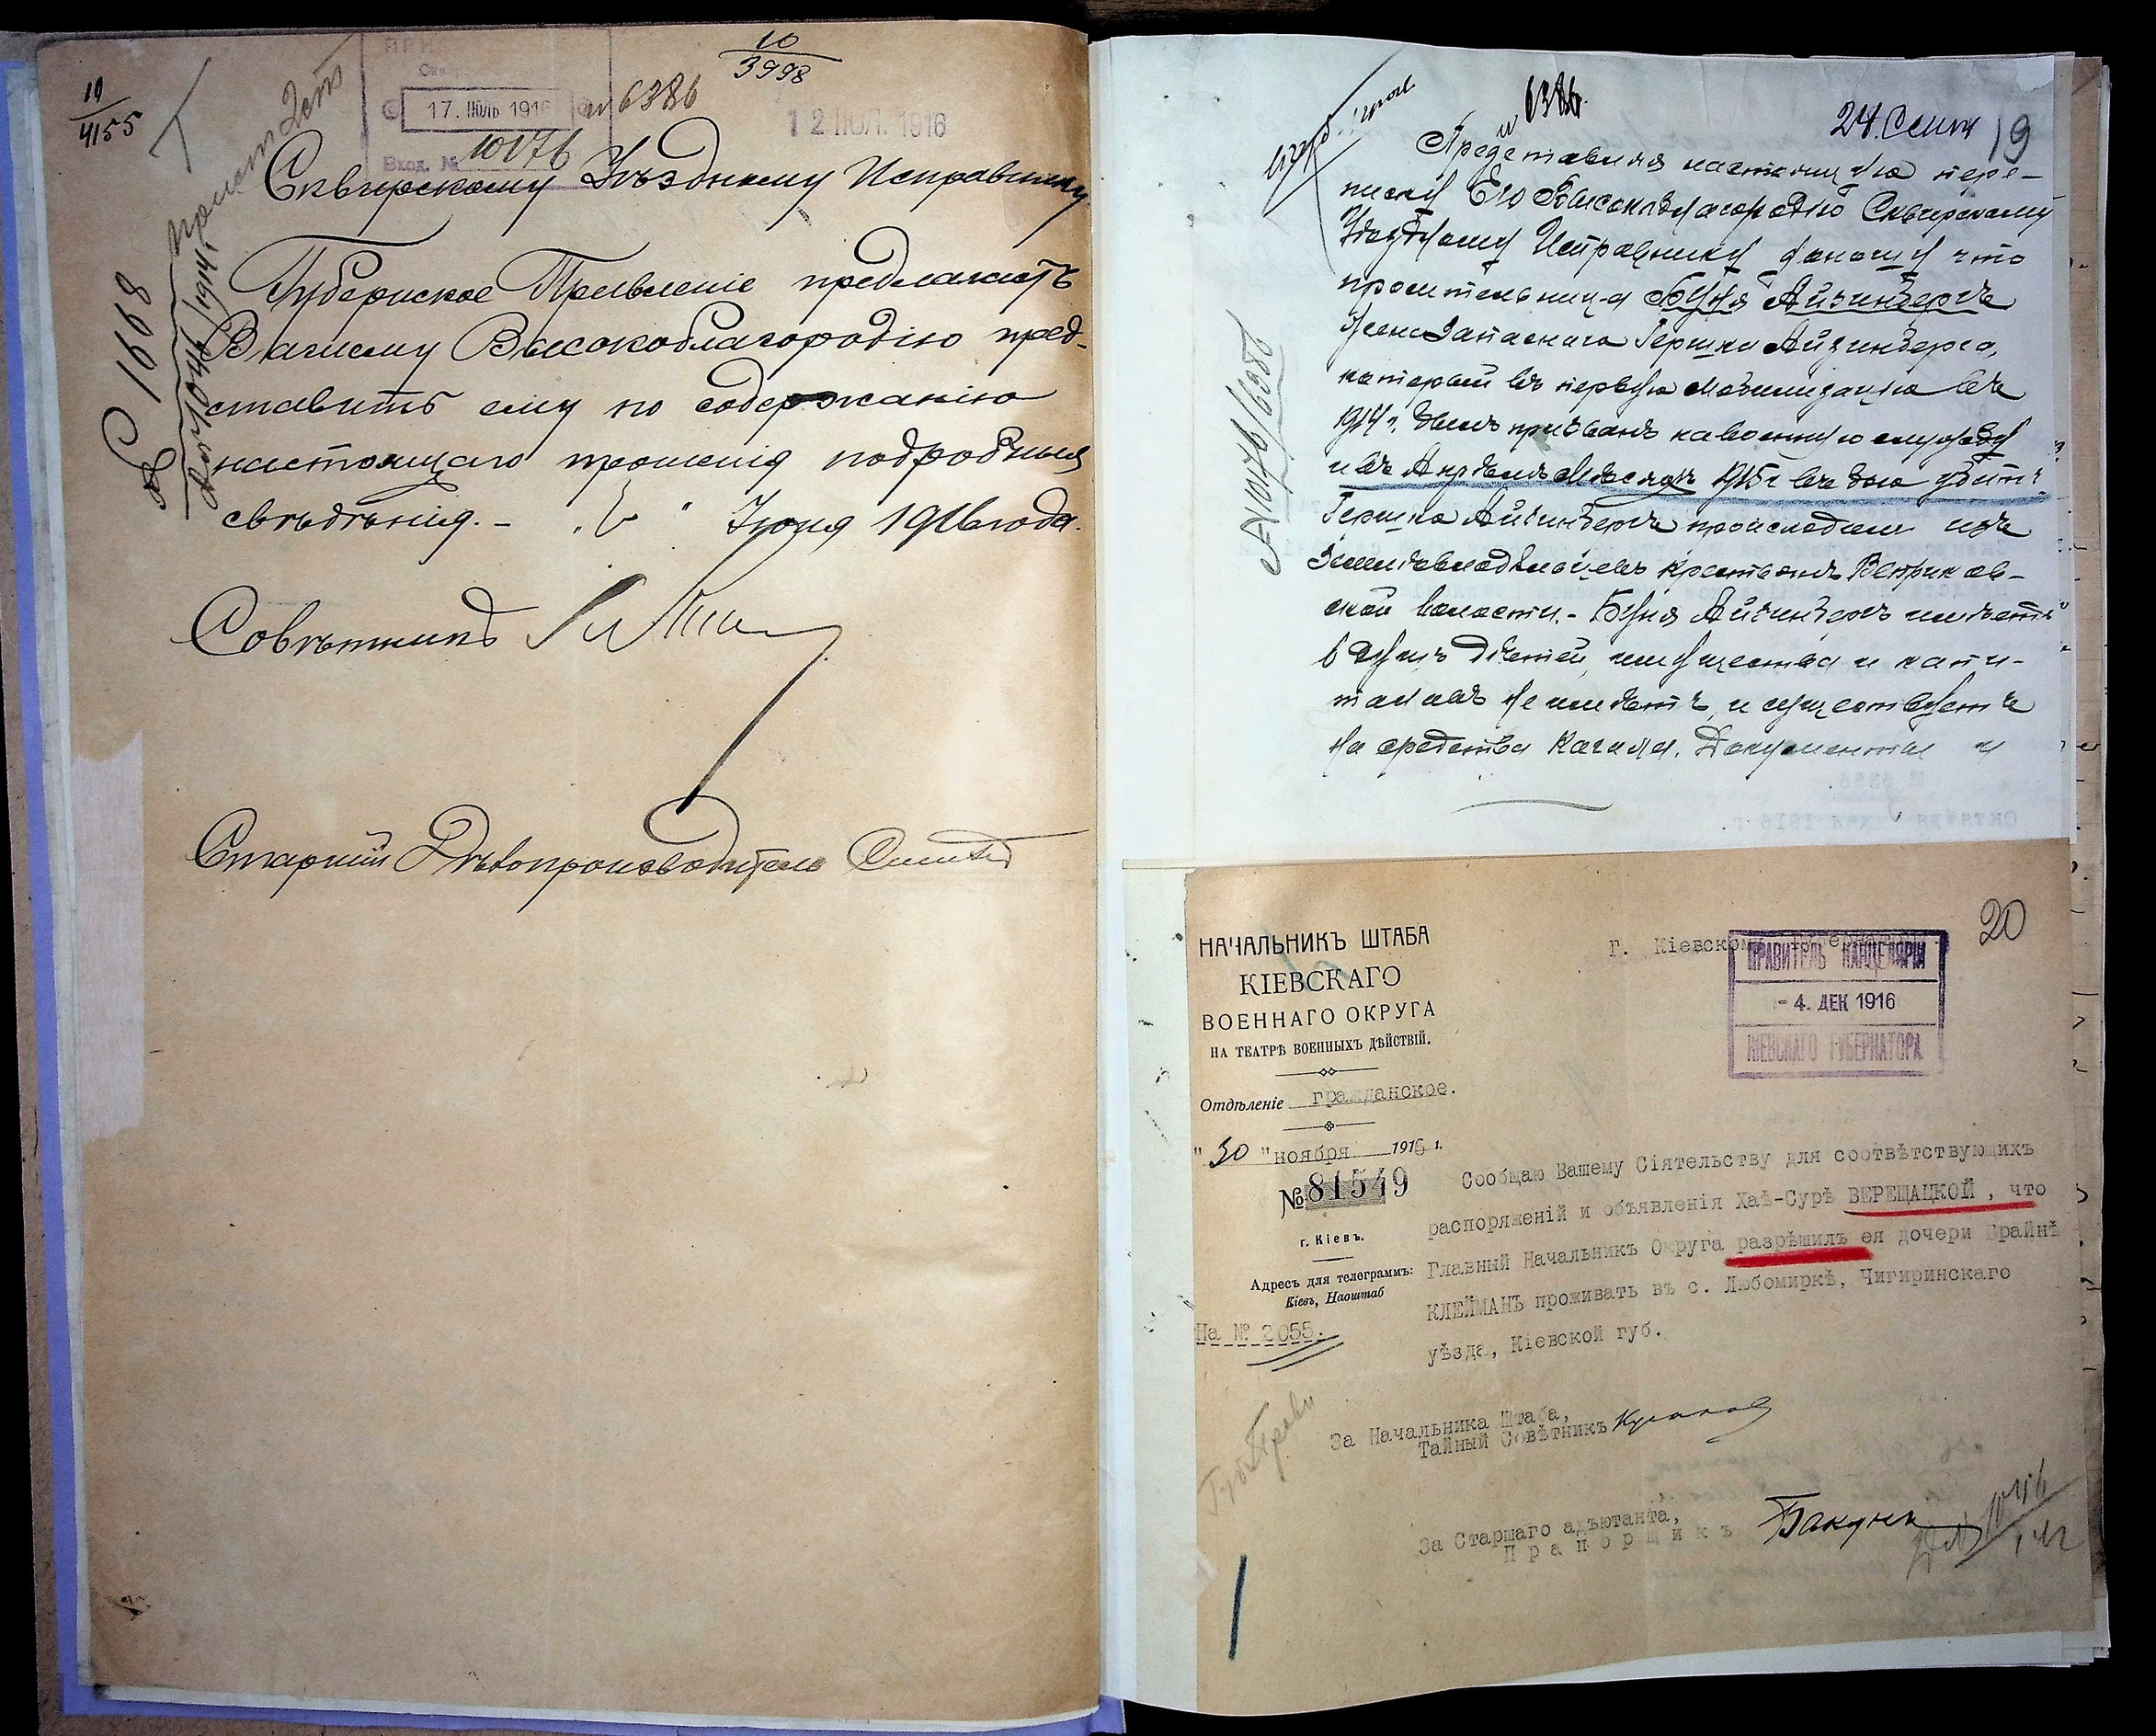 10
4155
10
3998
17. ІЮЛЬ 1916
Вход. №
10176
6386
12 ІЮЛ. 1916
№ 1668
Сквирскому Уѣздному Исправнику
Губернское Правленіе предлагаетъ
Вашему Высокоблагородію пред-
ставить ему по содержанію
настоящаго прошенія подробныя
свѣдѣнія. -
Іюня 1916 года.
Совѣтникъ
Старшій Дѣлопроизводитель
6386
24. Сент
19
№ 10176/6386
Представляя настоящую пере-
писку Его Высокоблагородію Сквирскому
Уѣздному Исправнику доношу что
просительница Буня Айзинбергъ
жена запаснаго Гершка Айзинберга,
который въ первую мобилизацію въ
1914 г. былъ призванъ на военную службу
и въ Апрѣлѣ мѣсяцѣ 1915 г въ бою убитъ
Гершко Айзинбергъ происходилъ изъ
земледѣльцевъ крестьянъ
ской волости. - Буня Айзинбергъ имѣетъ
дѣтей, имущества и капи-
таловъ не имѣетъ, и существуетъ
на средства кагала. Документы
20
НАЧАЛЬНИКЪ ШТАБА
КІЕВСКАГО
ВОЕННАГО ОКРУГА
НА ТЕАТРѢ ВОЕННЫХЪ ДѢЙСТВІЙ.
Отдѣленіе гражданское.
" 30 " ноября 1916 г.
№ 81549
г. Кіевъ.
Адресъ для телеграммъ:
Кіевъ, Наоштаб
На № 2055.
г. Кіевскому Губернатору.
ПРАВИТЕЛЬ КАНЦЕЛЯРІИ
- 4. ДЕК 1916
КІЕВСКАГО ГУБЕРНАТОРА
Сообщаю Вашему Сіятельству для соотвѣтствующихъ
распоряженій и объявленія Хаѣ-Сурѣ ВЕРЕЩАЦКОЙ, что
Главный Начальникъ Округа разрѣшилъ ея дочери Брайнѣ
КЛЕЙМАНЪ проживать въ с. Любомиркѣ, Чигиринскаго
уѣзда, Кіевской губ.
За Начальника Штаба,
Тайный Совѣтникъ
За Старшаго адъютанта,
Прапорщикъ Бакунин
Губ Правл